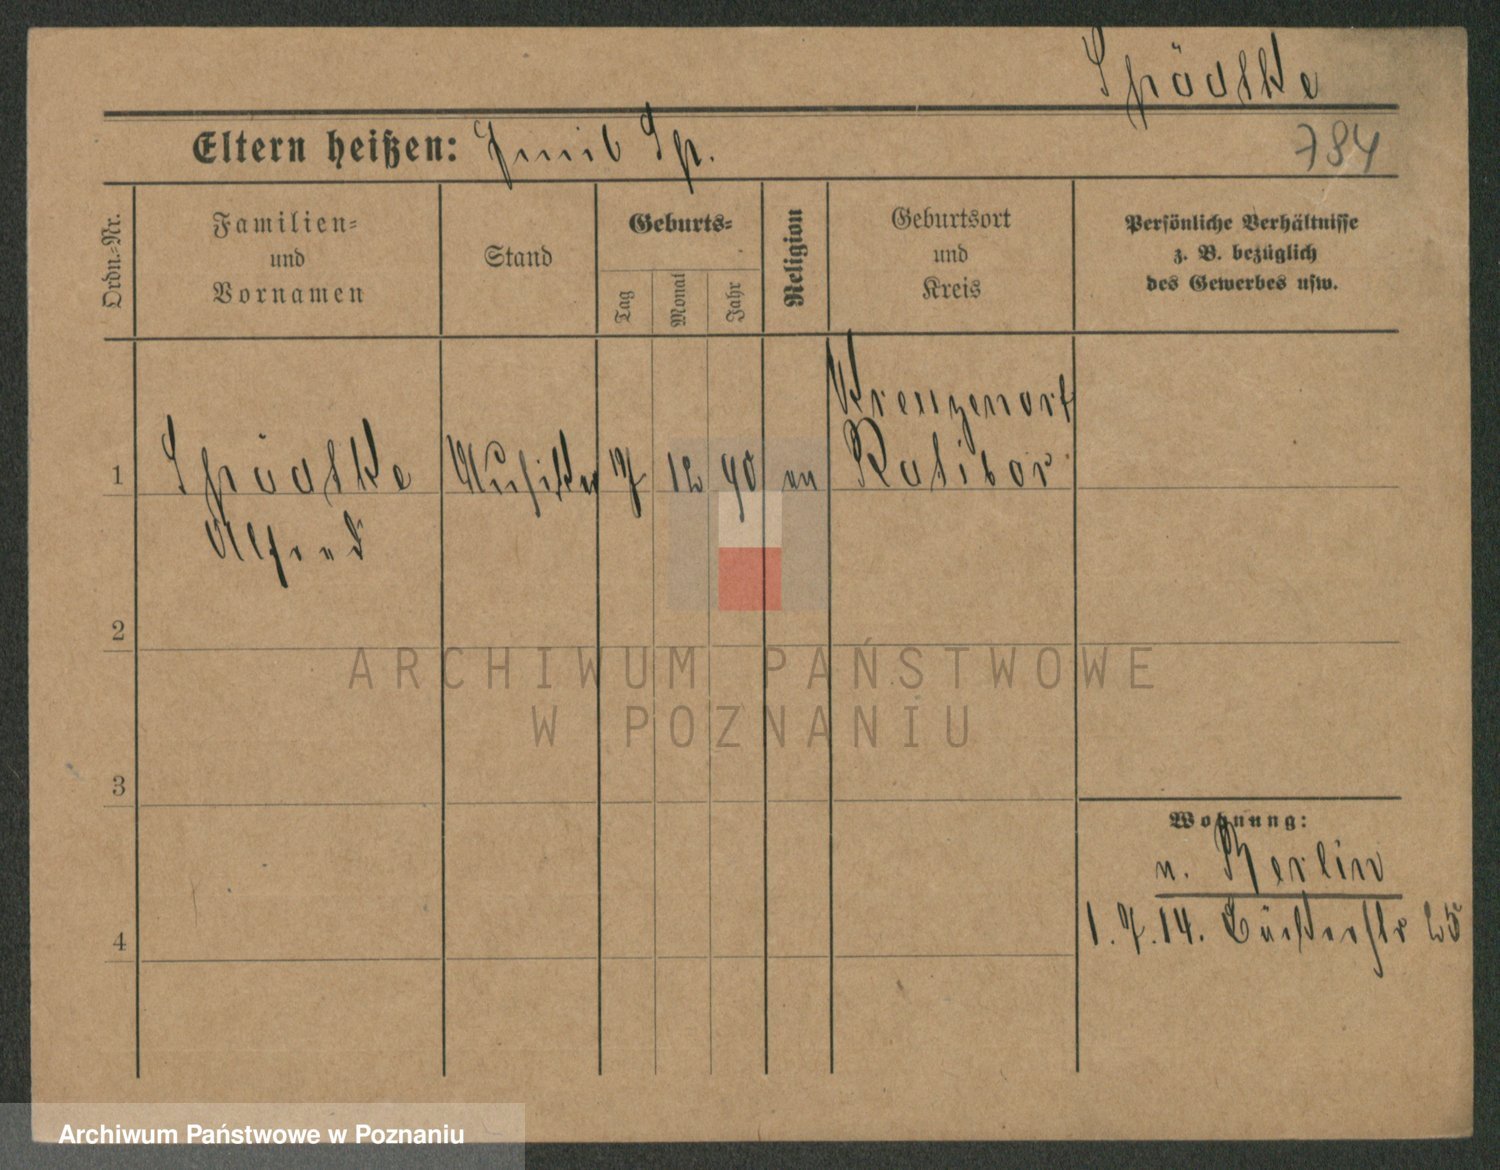 Spödtke
Eltern heißen: Emil Sp.
784
Ordn.-Nr.
Familien-
und
Vornamen
Stand
Geburts-
Tag
Monat
Jahr
Religion
Geburtsort
und
Kreis
Persönliche Verhältnisse
z. B. bezüglich
des Gewerbes usw.
1
Spödtke
Alfred
Musiker
12
90
ev
Kreuzenort
Ratibor
2
3
4
Wohnung:
n. Berlin
1.7.14.
25
ARCHIWUM PAŃSTWOWE
W POZNANIU
Archiwum Państwowe w Poznaniu